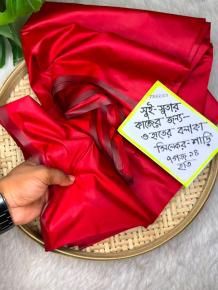 সুই-সুতার
কাজের জন্য-
ও হাতের বলাকা
সিল্কের-শাড়ি
৭গজ ১৪
হাত